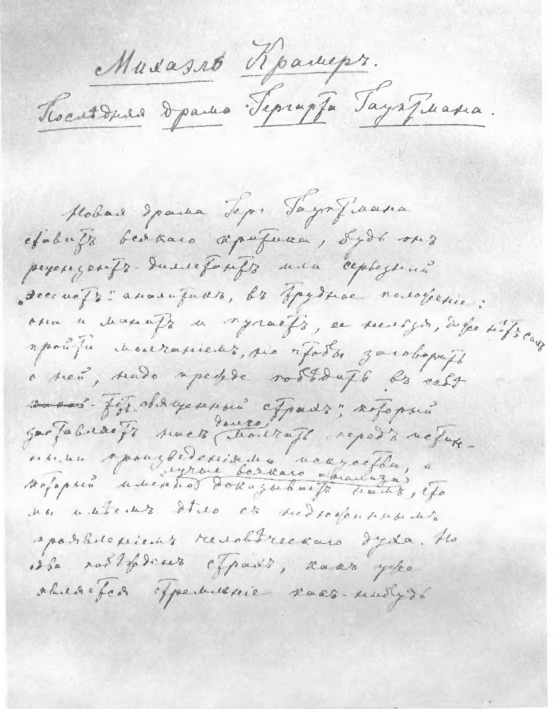 Михаэль Крамеръ.
Послѣдняя драма Гергарта Гауптмана.
Новая драма Гер. Гауптмана
ставитъ всякаго критика, будь онъ
рецензентъ-диллетантъ или серьезный
„эссеистъ“-аналитикъ, въ трудное положеніе:
она и манитъ и пугаетъ, ее нельзя,
пройти молчаніемъ, но чтобы заговорить
о ней, надо прежде побѣдить въ себѣ
тотъ „священный страхъ“, который
заставляетъ насъ долго молчать передъ истин-
ными произведеніями искусства, а
который именно лучше всякаго анализа доказываетъ намъ, что
мы имѣемъ дѣло съ недюжиннымъ
проявленіемъ человѣческаго духа. Но
едва побѣжденъ страхъ, какъ уже
является стремленіе какъ-нибудь